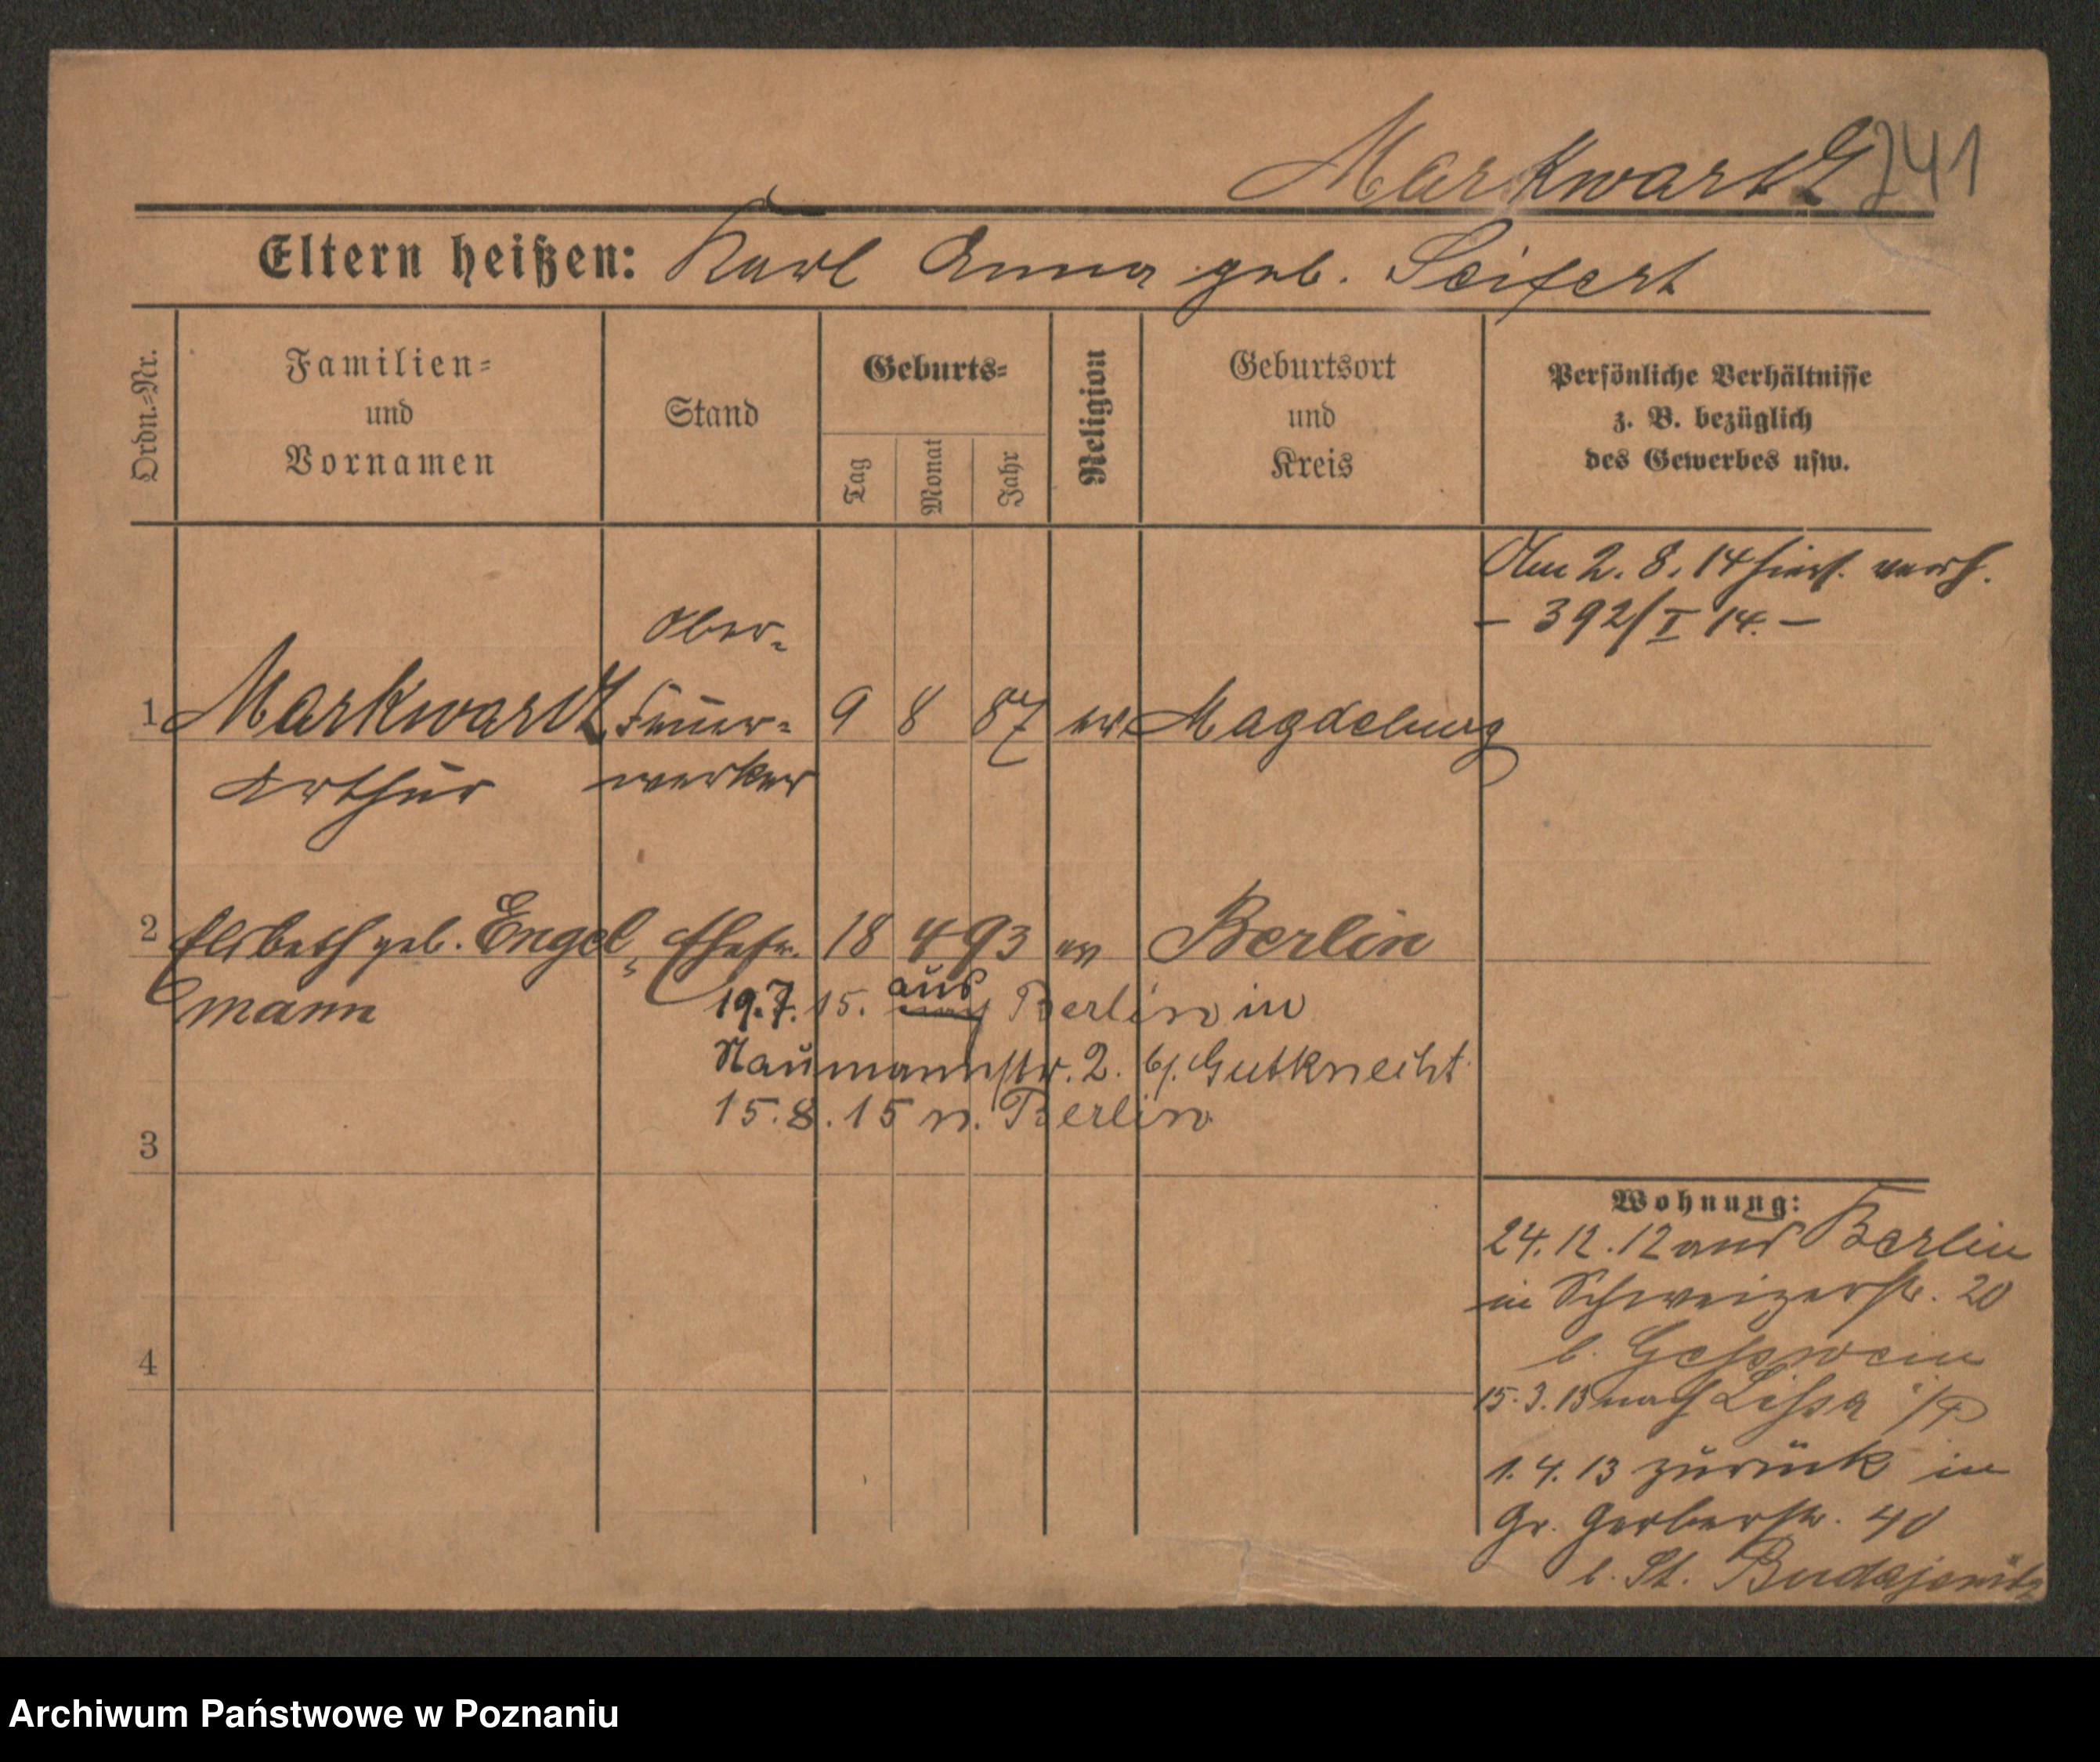 Markwardt 241
Eltern heißen: Karl Anna geb. Seifert
Ordn.-Nr.
Familien-
und
Vornamen
Stand
Geburts-
Tag
Monat
Jahr
Religion
Geburtsort
und
Kreis
Persönliche Verhältnisse
z. B. bezüglich
des Gewerbes usw.
Am 2. 8. 14 hier verh.
– 392/I 14. –
Ober-
1 Markwardt Feuer- 9 8 87 ev. Magdeburg
Arthur werker
2 Elsbeth geb. Engel- Ehefr. 18 4 93 ev Berlin
mann
19.7.15. aus nach Berlin in
Naumannstr. 2. b/. Gutknecht
15.8.15 n. Berlin
3
4
Wohnung:
24.12.12 aus Berlin
in Schweizerstr. 20
b. Gesswein
15.3.13 nach Lissa i/P
1.4.13 zurück in
Gr. Gerberstr. 40
b. St.
Archiwum Państwowe w Poznaniu